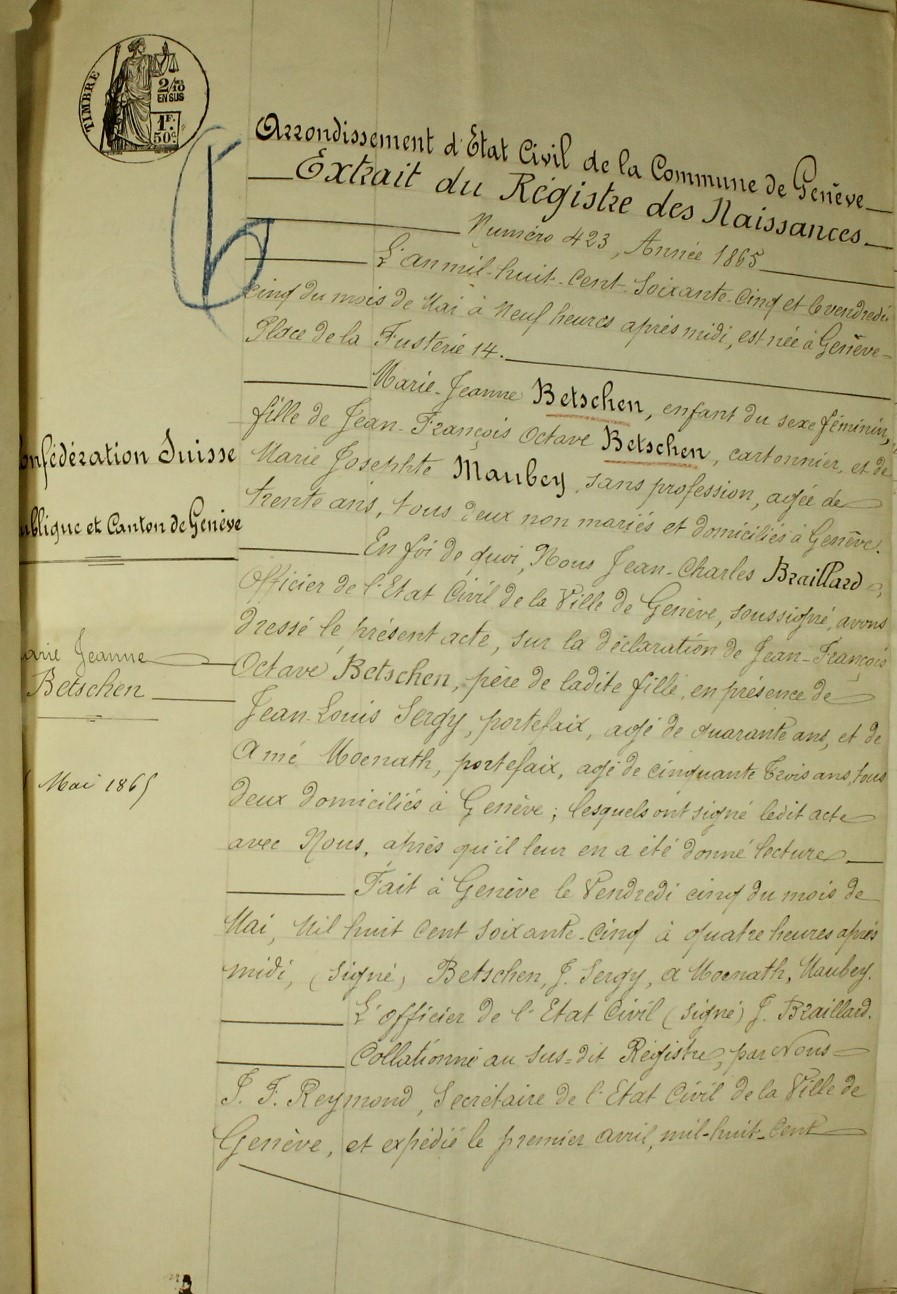 TIMBRE
2/10
EN SUS
1F.
50c.
Arrondissement d'Etat Civil de la Commune de Genève
Extrait du Régistre des Naissances
Numéro 423, Année 1865
L'an mil-huit-cent-soixante-cinq et le vendredi
cinq du mois de Mai à Neuf heures après midi, est née à Genève
Place de la Fusterie 14.
Marie-Jeanne Betschen, enfant du sexe féminin,
fille de Jean-François Octave Betschen, cartonnier, et de
Marie Josephte Maubey, sans profession, agée de
trente ans, tous deux non mariés et domiciliés à Genève.
En foi de quoi, Nous Jean-Charles Braillard
Officier de l'Etat Civil de la Ville de Genève, soussigné, avons
dressé le présent acte, sur la déclaration de Jean-François
Octave Betschen, père de ladite fille, en présence de
Jean-Louis Sergy, portefaix, agé de quarante ans, et de
Amé Mocnath, portefaix, agé de cinquante trois ans, tous
deux domiciliés à Genève; lesquels ont signé ledit acte
avec Nous, après qu'il leur en a été donné lecture
Fait à Genève le Vendredi cinq du mois de
Mai, Mil huit cent soixante-cinq à quatre heures après
midi, (signé) Betschen, J. Sergy, a Mocnath, Maubey.
L'officier de l'Etat Civil (signé) J. Braillard.
Collationné au sus-dit Régistre, par Nous
J. F. Reymond, Secrétaire de l'Etat Civil de la Ville de
Genève, et expédié le premier avril, mil-huit-cent
onfédération Suisse
ublique et Canton de Genève
arie Jeanne
Betschen
Mai 1865